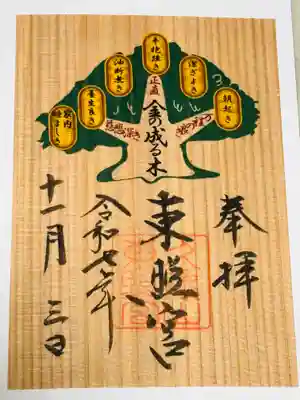 朝起き
潔ぎよき
辛抱強き
油断無き
養生良き
家内睦ましき
正直
慈悲深き
金の成る木
奉拝
東照宮
令和七年
十一月 三日